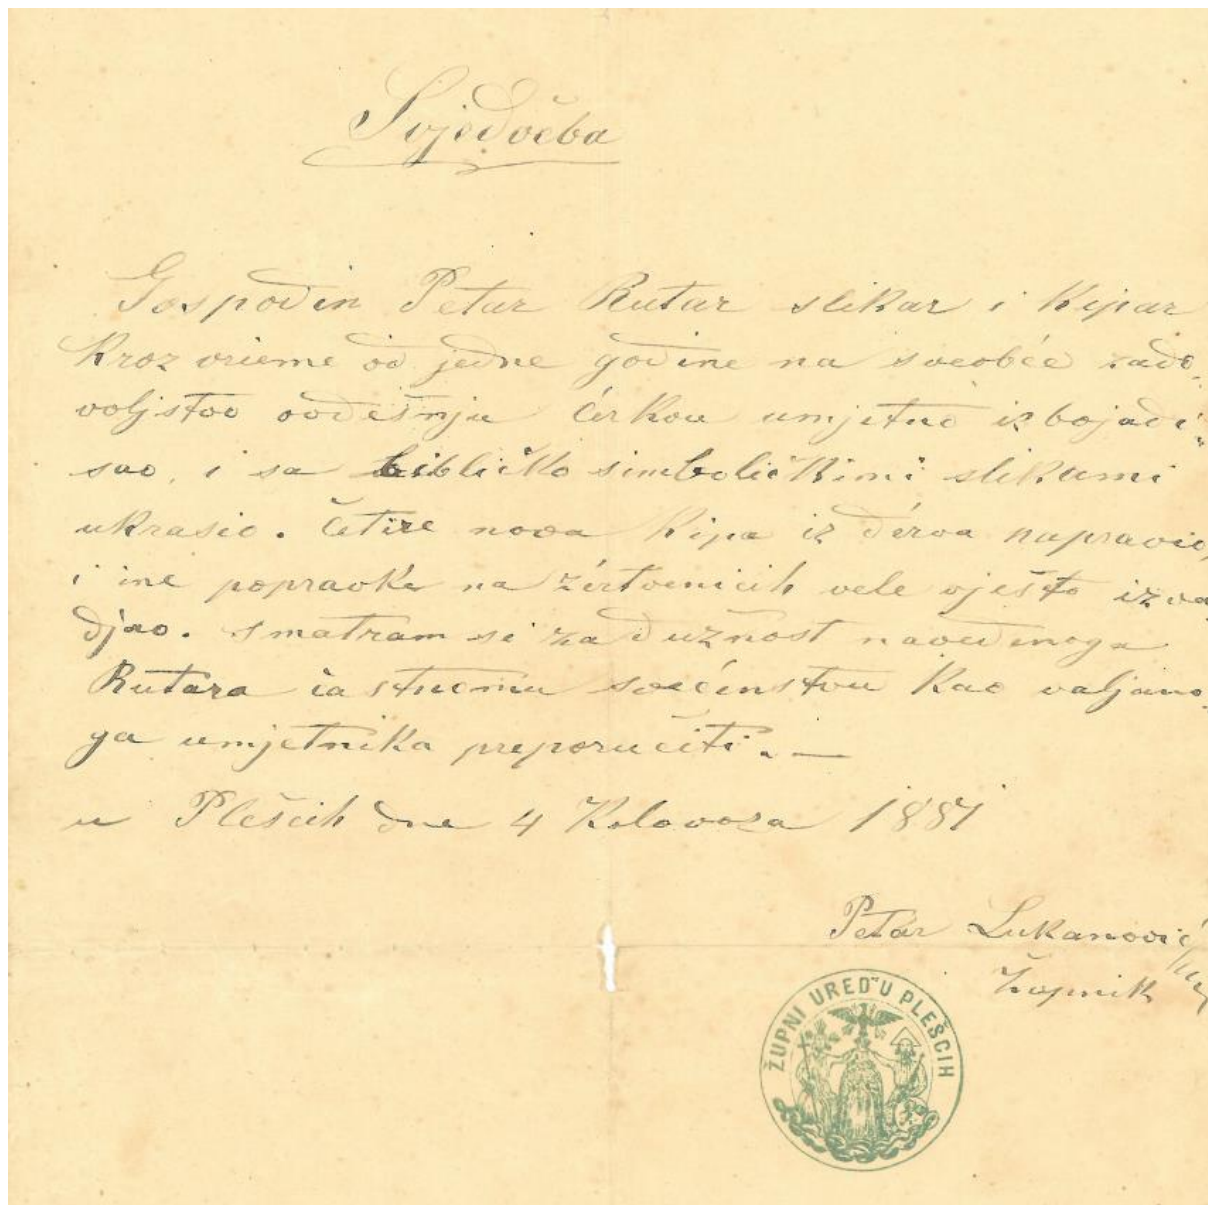 Svjedočba
Gospodin Petar Rutar slikar i Kipar
Kroz vrieme od jedne godine na sveobće zado-
voljstvo ovdešnju cérkvu umjetno izbojadi-
sao, i sa bibličko simboličkimi slikami
ukrasio. Četire nova Kipa iz dérva napravio,
i ine popravke na žértvenicih vele vješto izva-
djao. Smatram si za dužnost navedenoga
Rutara častnomu svećenstvu Kao valjano-
ga umjetnika preporučiti.—
u Plešcih dne 4 Kolovoza 1881
Petar Lukanović
Župnik
ŽUPNI URED U PLEŠCIH